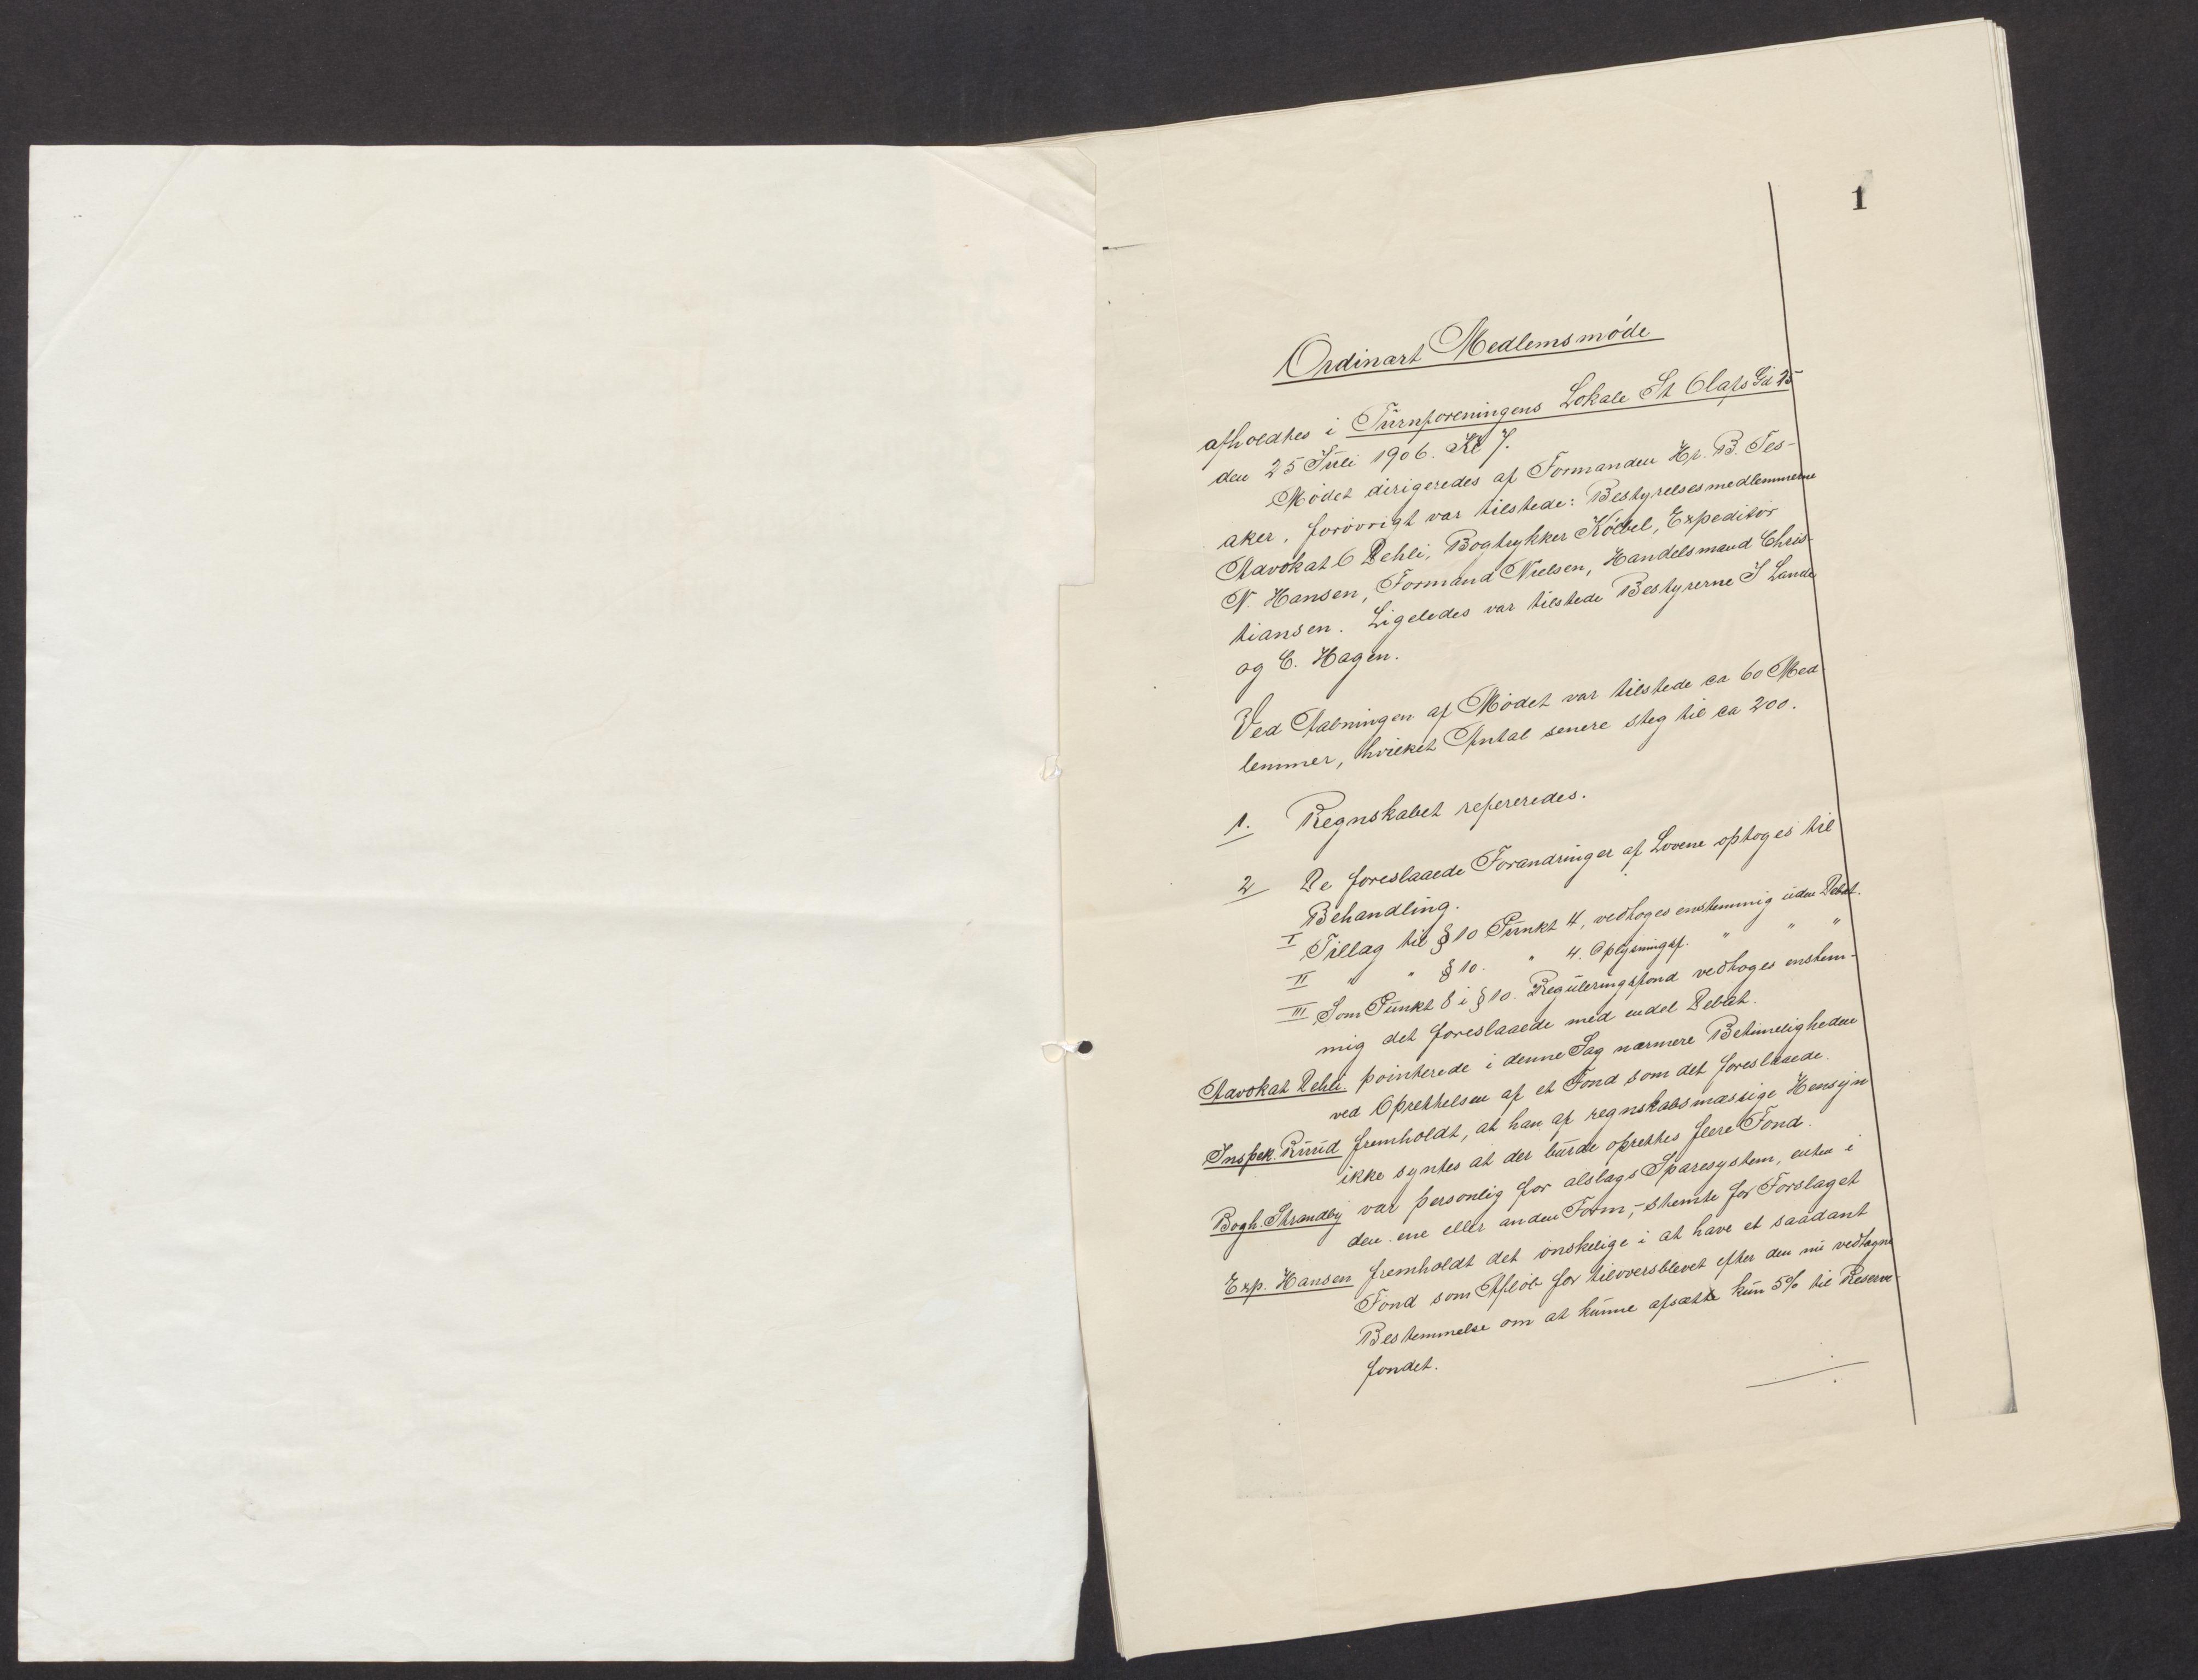 1
Ordinært Medlemsmöde
afholdtes i Turnforeningens Lokale St Olafs Gd 25
den 25 Juli 1906. Kl 7.
Mödet dirigeredes af Formanden Hr. B. Tes-
aker, forövrigt var tilstede: Bestyrelsesmedlemmerne
Advokat O Dehli, Bogtrykker Kölbel, Expeditör
N. Hansen, Formand Nielsen, Handelsmand Chris-
tiansen. Ligeledes var tilstede Bestyrerne J Lande
og C. Hagen.
Ved Aabningen af Mödet var tilstede ca 60 Med-
lemmer, hvilket Antal senere steg til ca 200.
1. Regnskabet refereredes.
2 De foreslaaede Forandringer af Lovene optoges til
Behandling.
I Tillæg til § 10 Punkt 4, vedtoges enstemmig uden Debat.
II " " § 10. " 4. Oplysningsf. " " "
III Som Punkt 8 i § 10. Reguleringsfond vedtoges enstem-
mig det foreslaaede med endel Debat.
Advokat Dehli. pointerede i denne Sag nærmere Betimeligheden
ved Oprettelsen af et Fond som det foreslaaede.
Inspek. Ruud fremholdt, at han af regnskabsmæssige Hensyn
ikke syntes at der burde oprettes flere Fond.
Bogh. Strandby var personlig for alslags Sparesystem, enten i
den ene eller anden Form, - stemte for Forslaget
Exp. Hansen fremholdt det önskelige i at have et saadant
Fond som Aflöb for tiloversblevet efter den nu vedtagne
Bestemmelse om at kunne afsætte kun 5% til Reserve-
fondet.